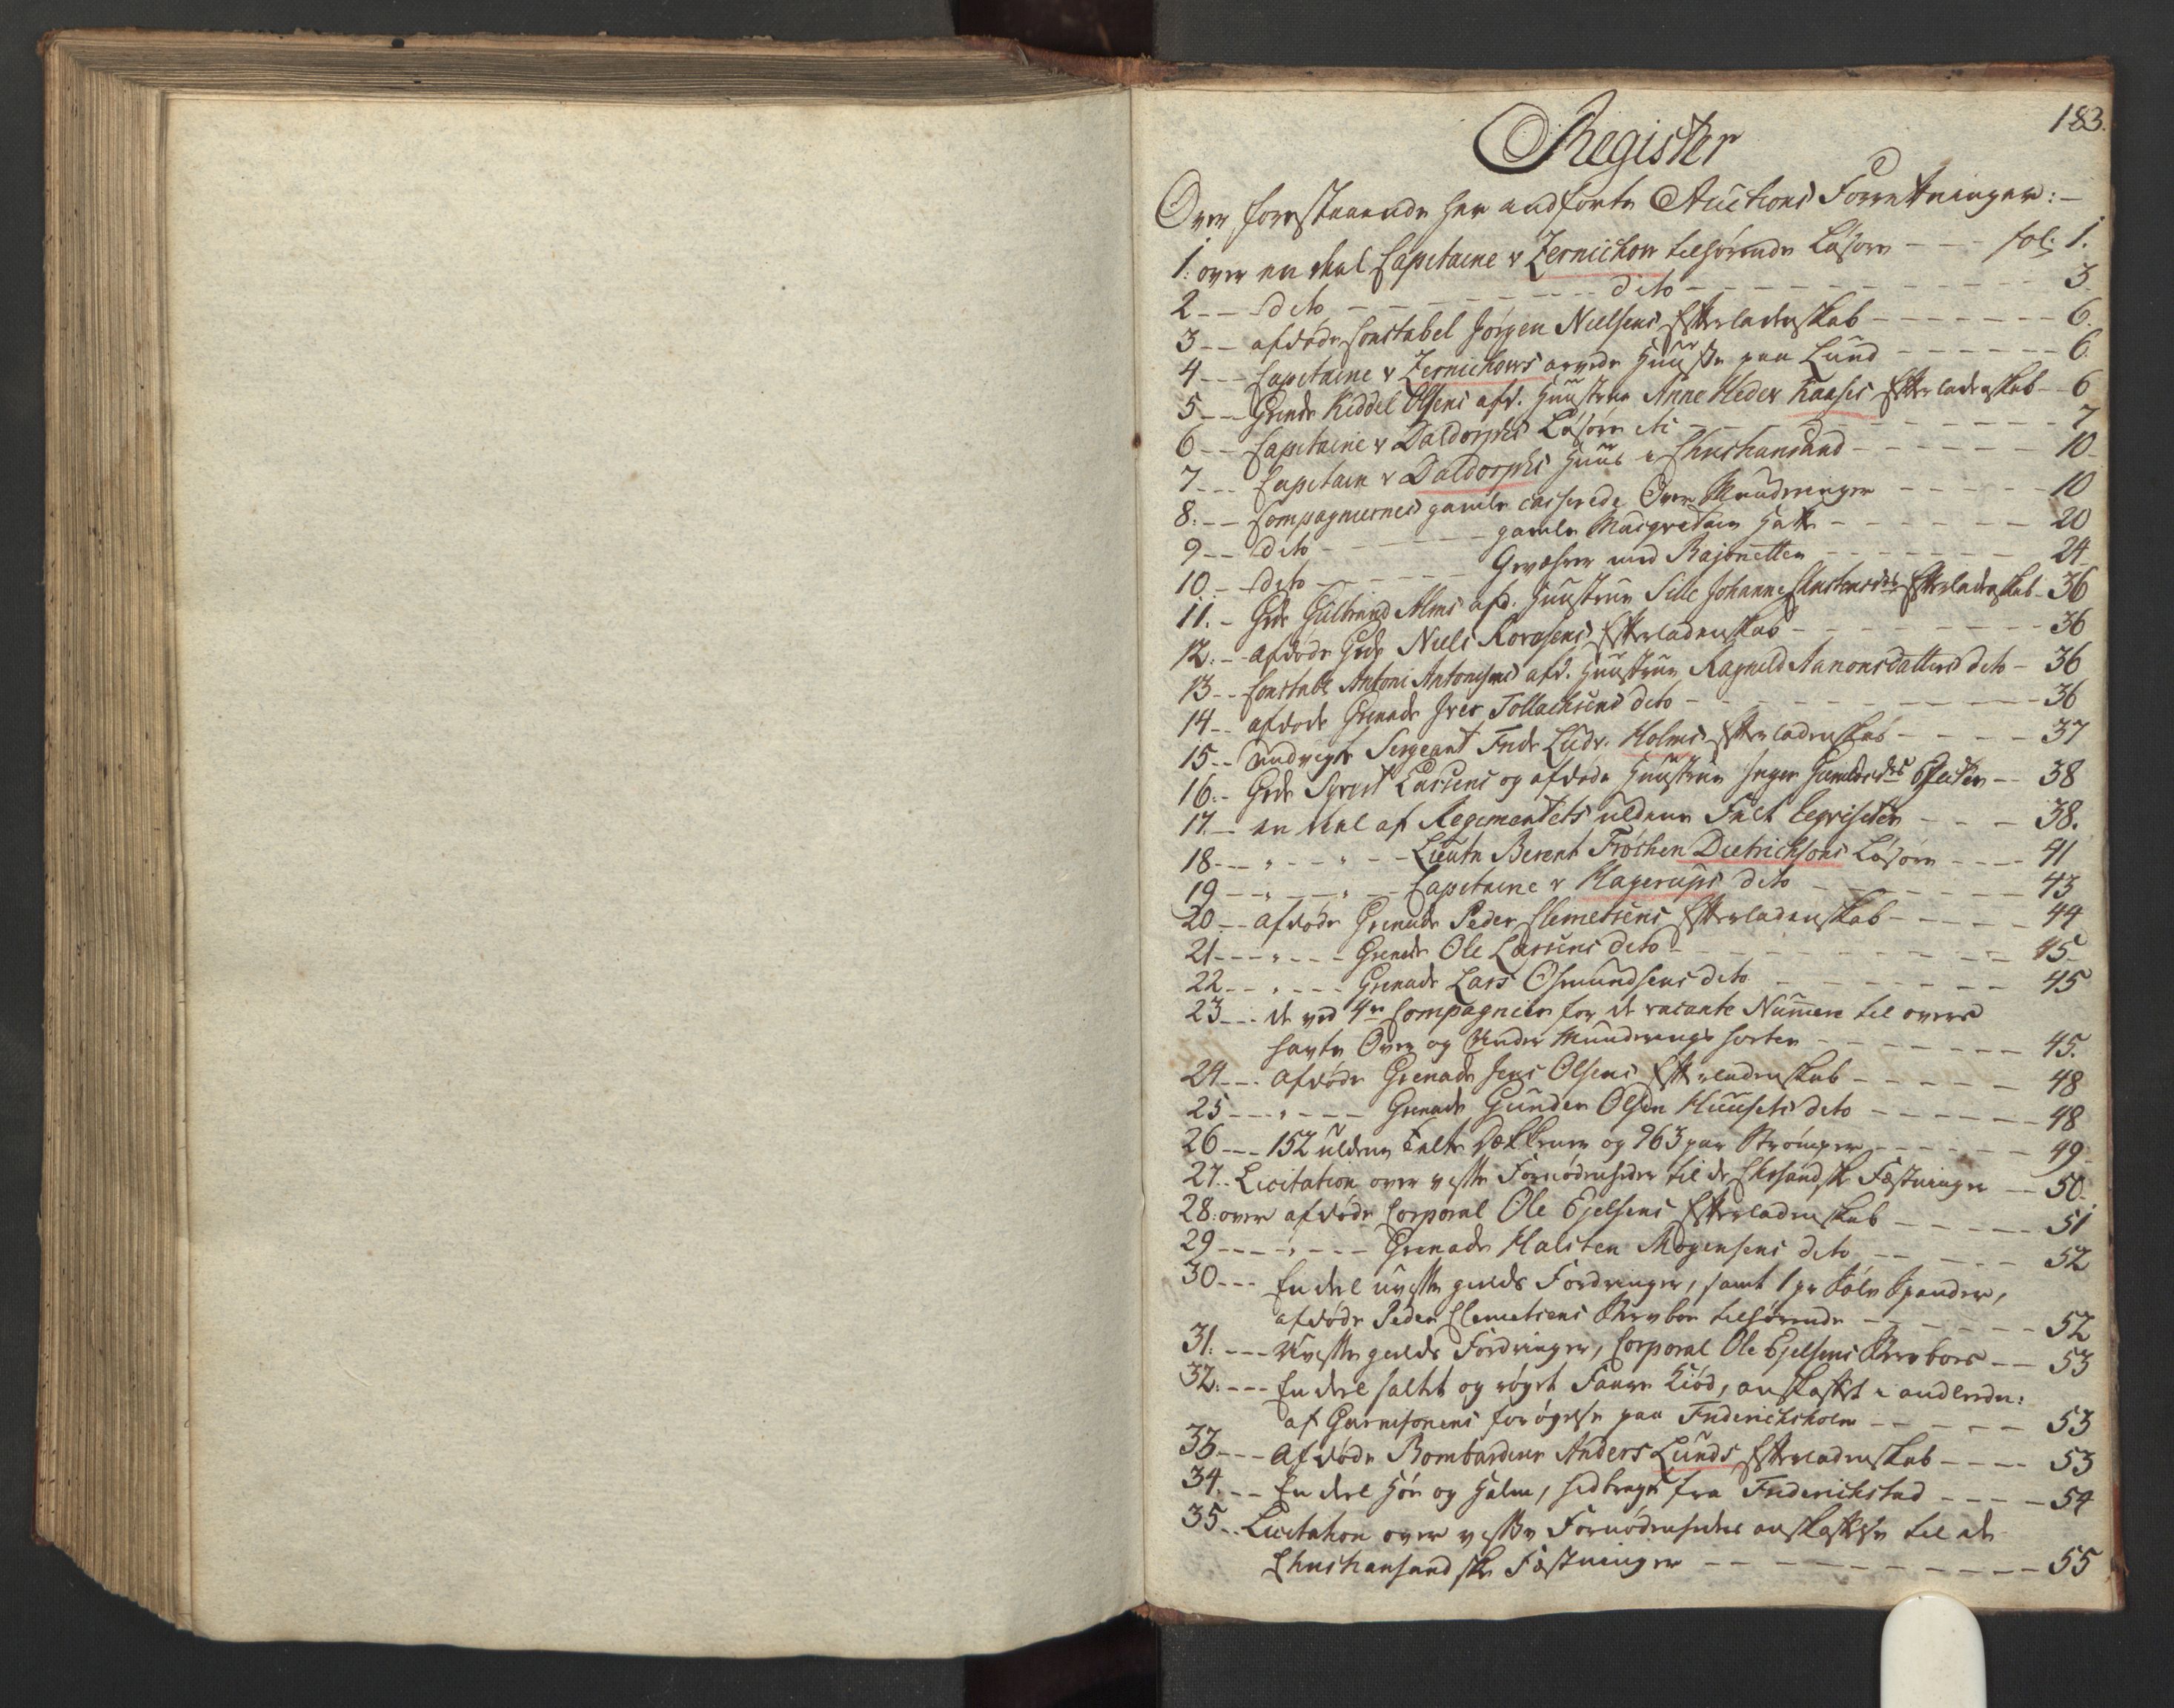 183.
Register
Over forestaaende her andførte Auctions Forretninger:-
1. over en deel Capitaine v Zernichow tilhørende Løsøre - - - fol: 1.
2 - - dito - - - dito - - - 3
3 - - afdøde Constabel Jörgen Nielsens Efterladenskab - - - 6.
4 - - Capitaine v Zernichows Huuse paa Lund - - - 6.
5 - - Grenadr Kiddel Olsens afd. Huustrue Anne Heder Kaases Efterladenskab - 6
6 - - Capitaine v Daldorphs Løsøre etc - - - 7
7 - - Capitain v Daldorphs Huus i Christiansand - - - 10
8. - - Compagniernes gamle casserede Over Mundringer - - - 10
9 - - dito - - - gamle Hatte - - - 20
10 - - dito - - - Gevæhrer med Bajonetter - - - 24
11. - Grdr Gulbrand Alms afd. Huustrue Sille Johanne Christensdr Efterladenskab - 36
12. - - afdøde Grdr Niels Efterladenskab - - - 36
13 - - Constabl Antoni Antonisens afd. Huustrue Ragnild Aanonsdatters dito - 36
14 - - afdøde Grenadr Iver Tollachsens dito - - - 36
15 - - Sergeant Fridr Ludv. Holms Efterladenskab - - - 37
16. - Grdr Syvert Larsens og afdøde Huustrue Inger Effecter - - 38
17. - en deel af Regimentets uldene Felt - - - 38.
18 - - " - - " - - Lieutn Berent Frøchen Dietrichsons Løsøre - - - 41
19 - - " - - " - - Capitaine v Hagerups dito - - - 43
20 - - afdøde Grenadr Peder Clemetsens Efterladenskab - - - 44
21 - - - " - - - Grenadr Ole Larsens dito - - - 45
22 - - " - - - Grenadr Lars Osmundsens dito - - - 45
23 - - de ved 4re Compagnier for de vacante Numere til overs
havte Over og Under Mundrings sorter - - - 45.
24 - - - afdøde Grenadr Jens Olsens Efterladenskab - - - 48
25 - - - " - - - Grenadr Gunder Olsen Huusets dito - - - 48
26 - - - 152 uldene Felt Dekkener og 963 par Strømper - - - 49
27. - Licitation over visse Fornødenheder til de Chrsandske Fæstninger - - 50
28. over afdøde Corporal Ole Ejelsens Efterladenskab - - - 51
29 - - - " - - - Grenadr Halsten Mogensens dito - - - 52
30 - - - En deel uvisse gields Fordringer, samt 1 pr Sølv Spender,
afdøde Peder Clemetsens Stervboe tilhørende - - - 52
31. - - - Uvisse gields Fordringer, Corporal Ole Ejelsens Stervboes - - 53
32. - - - En deel saltet og røget Faare Kiød, anskaffet i andledn:
af Garnisonens forøgelse paa Friderichsholm - - - 53
33 - - - Afdøde Bombardeer Anders Lunds Efterladenskab - - - 53
34. - - En deel Høe og Halm, hidbragt fra Friderichstad - - - 54
35 - - Licitation over visse Fornødenheders anskaffelse til de
Christiansandske Fæstninger - - - 55